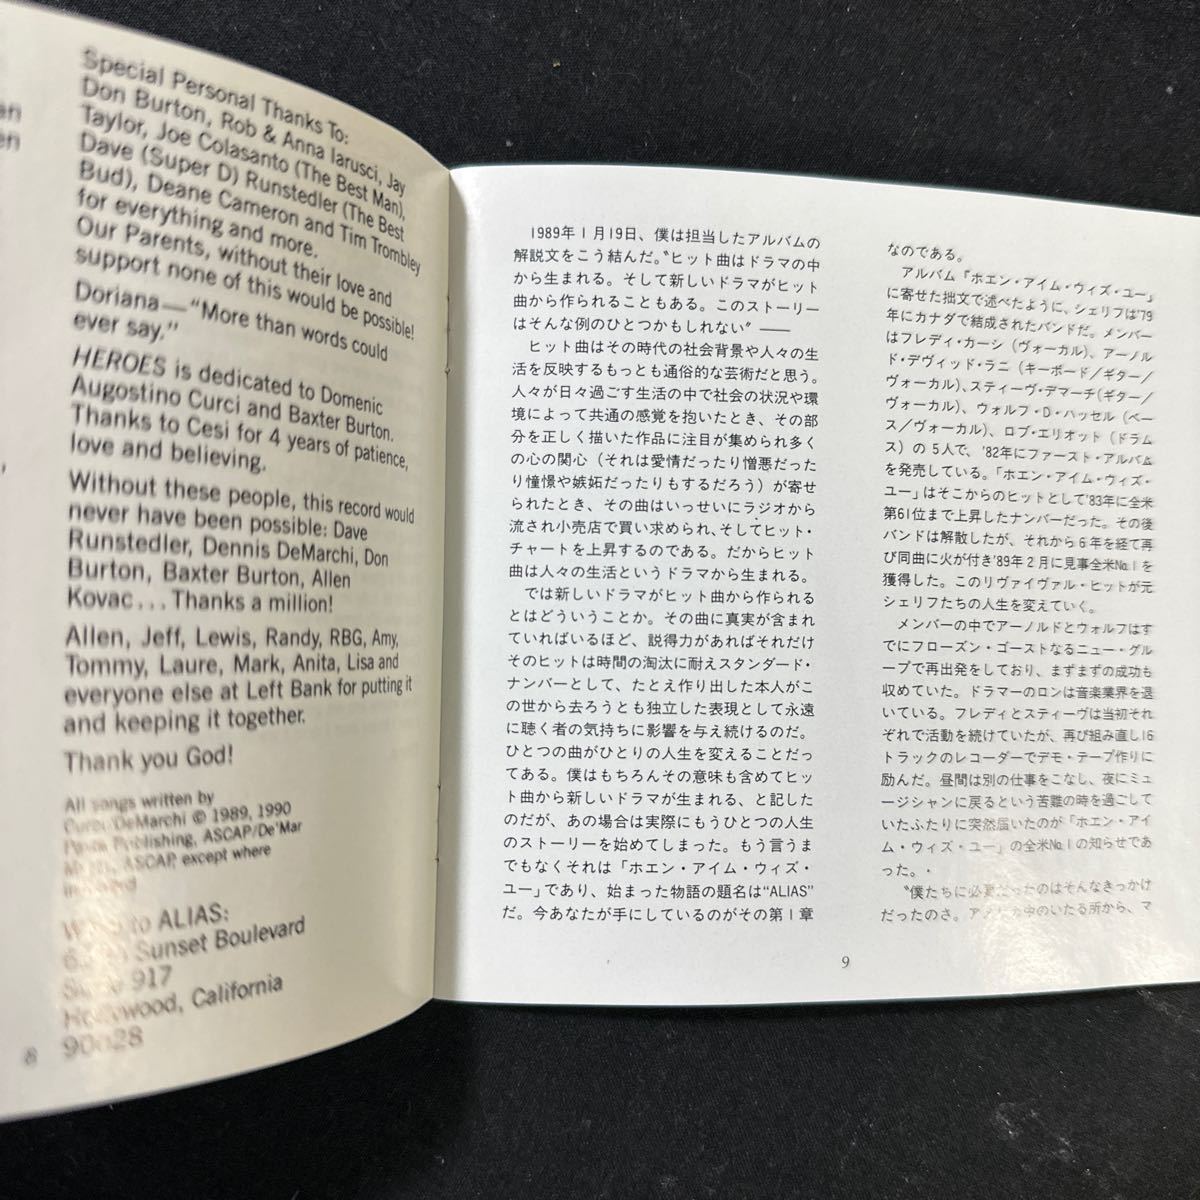 an
en
Special Personal Thanks To:
Don Burton, Rob & Anna Iarusci, Jay
Taylor, Joe Colasanto (The Best Man),
Dave (Super D) Runstedler (The Best
Bud), Deane Cameron and Tim Trombley
for everything and more.
Our Parents, without their love and
support none of this would be possible!
Doriana—“More than words could
ever say.”
HEROES is dedicated to Domenic
Augostino Curci and Baxter Burton.
Thanks to Cesi for 4 years of patience,
love and believing.
Without these people, this record would
never have been possible: Dave
Runstedler, Dennis DeMarchi, Don
Burton, Baxter Burton, Allen
Kovac... Thanks a million!
Allen, Jeff, Lewis, Randy, RBG, Amy,
Tommy, Laure, Mark, Anita, Lisa and
everyone else at Left Bank for putting it
and keeping it together.
Thank you God!
All songs written by
Curci/DeMarchi © 1989, 1990
Publishing, ASCAP/De'Mar
ASCAP, except where
to ALIAS:
Sunset Boulevard
917
Hollywood, California
8
1989年1月19日、僕は担当したアルバムの
解説文をこう結んだ。〝ヒット曲はドラマの中
から生まれる。そして新しいドラマがヒット
曲から作られることもある。このストーリー
はそんな例のひとつかもしれない〟——
ヒット曲はその時代の社会背景や人々の生
活を反映するもっとも通俗的な芸術だと思う。
人々が日々過ごす生活の中で社会の状況や環
境によって共通の感覚を抱いたとき、その部
分を正しく描いた作品に注目が集められ多く
の心の関心（それは愛情だったり憎悪だった
り憧憬や嫉妬だったりもするだろう）が寄せ
られたとき、その曲はいっせいにラジオから
流され小売店で買い求められ、そしてヒット・
チャートを上昇するのである。だからヒット
曲は人々の生活というドラマから生まれる。
では新しいドラマがヒット曲から作られる
とはどういうことか。その曲に真実が含まれ
ていればいるほど、説得力があればそれだけ
そのヒットは時間の淘汰に耐えスタンダード・
ナンバーとして、たとえ作り出した本人がこ
の世から去ろうとも独立した表現として永遠
に聴く者の気持ちに影響を与え続けるのだ。
ひとつの曲がひとりの人生を変えることだっ
てある。僕はもちろんその意味も含めてヒッ
ト曲から新しいドラマが生まれる、と記した
のだが、あの場合は実際にもうひとつの人生
のストーリーを始めてしまった。もう言うま
でもなくそれは「ホエン・アイム・ウィズ・
ユー」であり、始まった物語の題名は“ALIAS”
だ。今あなたが手にしているのがその第1章
なのである。
アルバム『ホエン・アイム・ウィズ・ユー』
に寄せた拙文で述べたように、シェリフは'79
年にカナダで結成されたバンドだ。メンバー
はフレディ・カーシ（ヴォーカル）、アーノル
ド・デヴィッド・ラニ（キーボード／ギター／
ヴォーカル）、スティーヴ・デマーチ（ギター／
ヴォーカル）、ウォルフ・D・ハッセル（ベー
ス／ヴォーカル）、ロブ・エリオット（ドラム
ス）の5人で、'82年にファースト・アルバム
を発売している。「ホエン・アイム・ウィズ・
ユー」はそこからのヒットとして'83年に全米
第61位まで上昇したナンバーだった。その後
バンドは解散したが、それから6年を経て再
び同曲に火が付き'89年2月に見事全米No.1を
獲得した。このリヴァイヴァル・ヒットが元
シェリフたちの人生を変えていく。
メンバーの中でアーノルドとウォルフはす
でにフローズン・ゴーストなるニュー・グル
ープで再出発をしており、まずまずの成功も
収めていた。ドラマーのロンは音楽業界を退
いている。フレディとスティーヴは当初それ
ぞれで活動を続けていたが、再び組み直し16
トラックのレコーダーでデモ・テープ作りに
励んだ。昼間は別の仕事をこなし、夜にミュ
ージシャンに戻るという苦難の時を過ごして
いたふたりに突然届いたのが「ホエン・アイ
ム・ウィズ・ユー」の全米No.1の知らせであ
った。
〝僕たちに必要だったのはそんなきっかけ
だったのさ。アメリカ中のいたる所から、マ
9